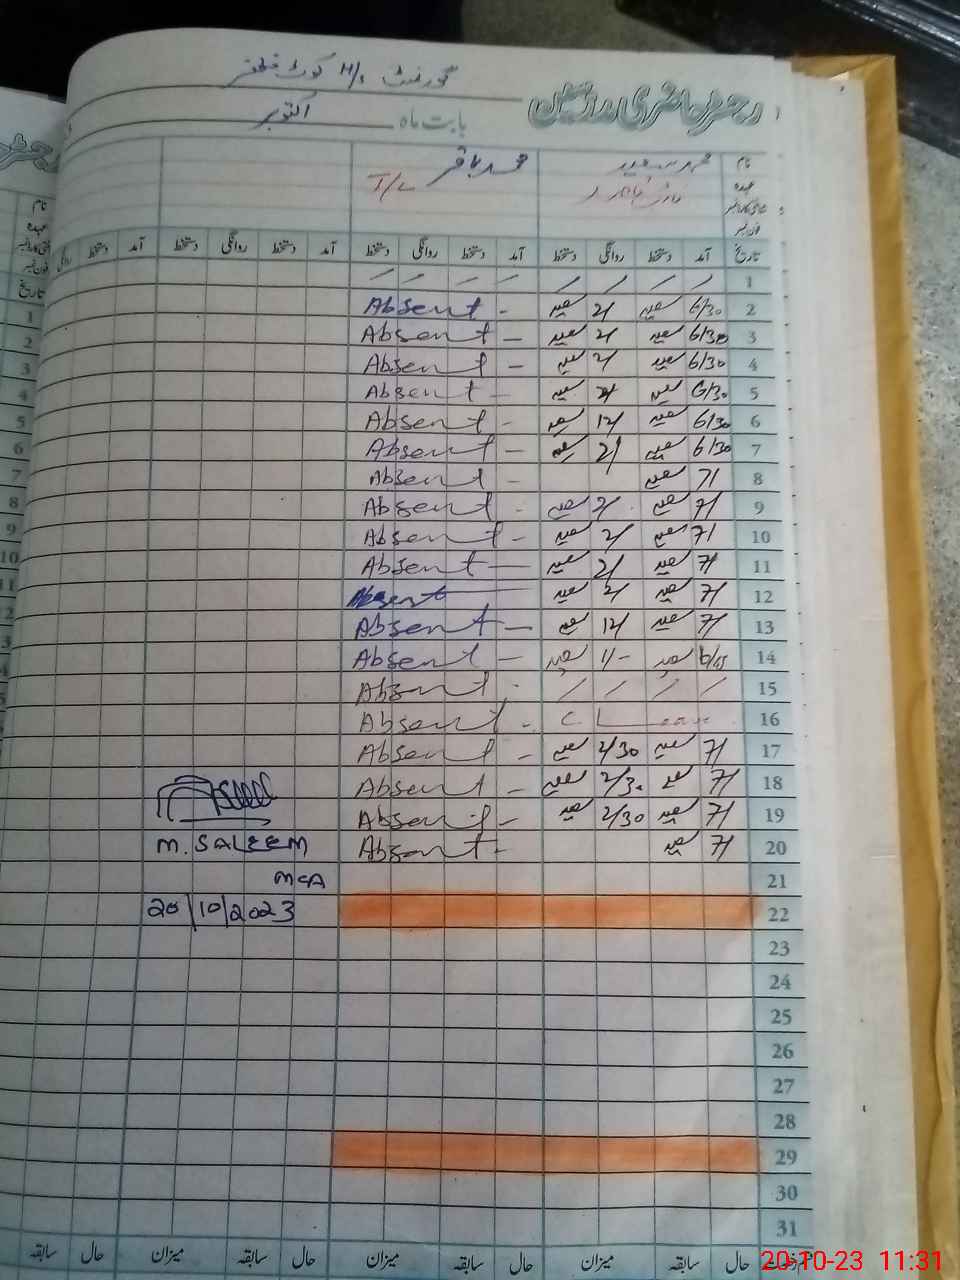 رجسٹر حاضری مدرسین
گورنمنٹ H/S کوٹ مظفر
بابت ماہ اکتوبر
نام محمد سعید محمد باقر
عہدہ
تاریخ آمد دستخط روانگی دستخط آمد دستخط روانگی دستخط آمد دستخط روانگی دستخط
1
2 6/30 سعید 2/ سعید Absent -
3 6/30 سعید 2/ سعید Absent -
4 6/30 سعید 2/ سعید Absent -
5 6/30 سعید سعید Absent -
6 6/30 سعید 12/ سعید Absent -
7 6/30 سعید 2/ سعید Absent -
8 7/ سعید Absent -
9 7/ سعید 2/ سعید Absent -
10 7/ سعید 2/ سعید Absent -
11 7/ سعید 2/ سعید Absent -
12 7/ سعید 2/ سعید Absent
13 7/ سعید 12/ سعید Absent -
14 6/45 سعید 1/- سعید Absent -
15 Absent -
16 C. Leave Absent -
17 7/ سعید 2/30 سعید Absent -
18 7/ سعید 2/30 سعید Absent -
19 7/ سعید 2/30 سعید Absent -
20 7/ سعید Absent - M. SALEEM
21 MEA
22 20/10/2023
23
24
25
26
27
28
29
30
31
حال سابقہ میزان حال سابقہ میزان حال سابقہ میزان حال سابقہ
20-10-23 11:31